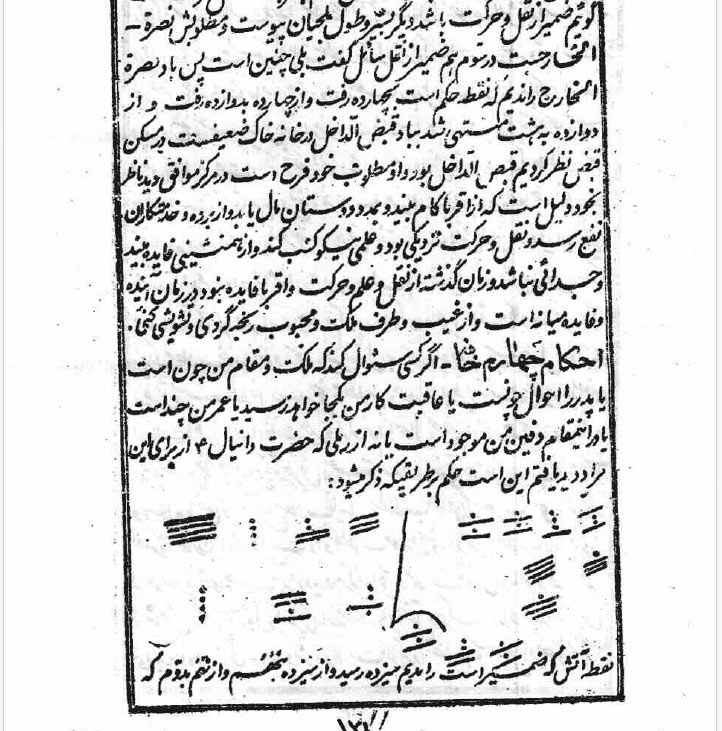 گوئیم ضمیر از نقل و حرکت باشد دیگر بسیر و طول بلحیان پیوست و مطلوبش نصرة
الخارجست در سوم هم ضمیر از نقل سائل گفت بلی چنین است پس باد نصرة
الخارج راندیم که نقطه حکم است بچهارده رفت و از چهارده بدوازده رفت و از
دوازده به هشت منتهی شد بباد قبض الداخل در خانه خاک ضعیفست در مسکن
قبض نظر کردیم قبض الداخل بود و او مطلوب خود فرح است در مرکز موافق و بد ناظر
بخود دلیل است که از اقربا کام بیند و بمدد دوستان مال یابد و از برده و خدمتکاران
نفع رسد و نقل و حرکت نزدیکی بود و علمی نیکو کسب کند و از همنشینی فایده بیند
و جدائی نباشد و زمان گذشته از نقل و علم و حرکت و اقربا فایده نبود در زمان آینده
و فایده میانه است و از غیب و طرف ملک و محبوب رنجه گردی و تشویشی کشی.
احکام چهارم خانه - اگر کسی سئوال کند که ملک و مقام من چون است
یا پدر را احوال چونست یا عاقبت کار من بکجا خواهد رسید یا عمر من چند است
یا در اینمقام دفین من موجود است یا نه از رملی که حضرت دانیال ۴ از برای این
مراد دید یافتم این است حکم بر طریقیکه ذکر میشود:
نقطه آتش که ضمیر است راندیم سیزده رسید و از سیزده بنهم و از نهم بدوم که